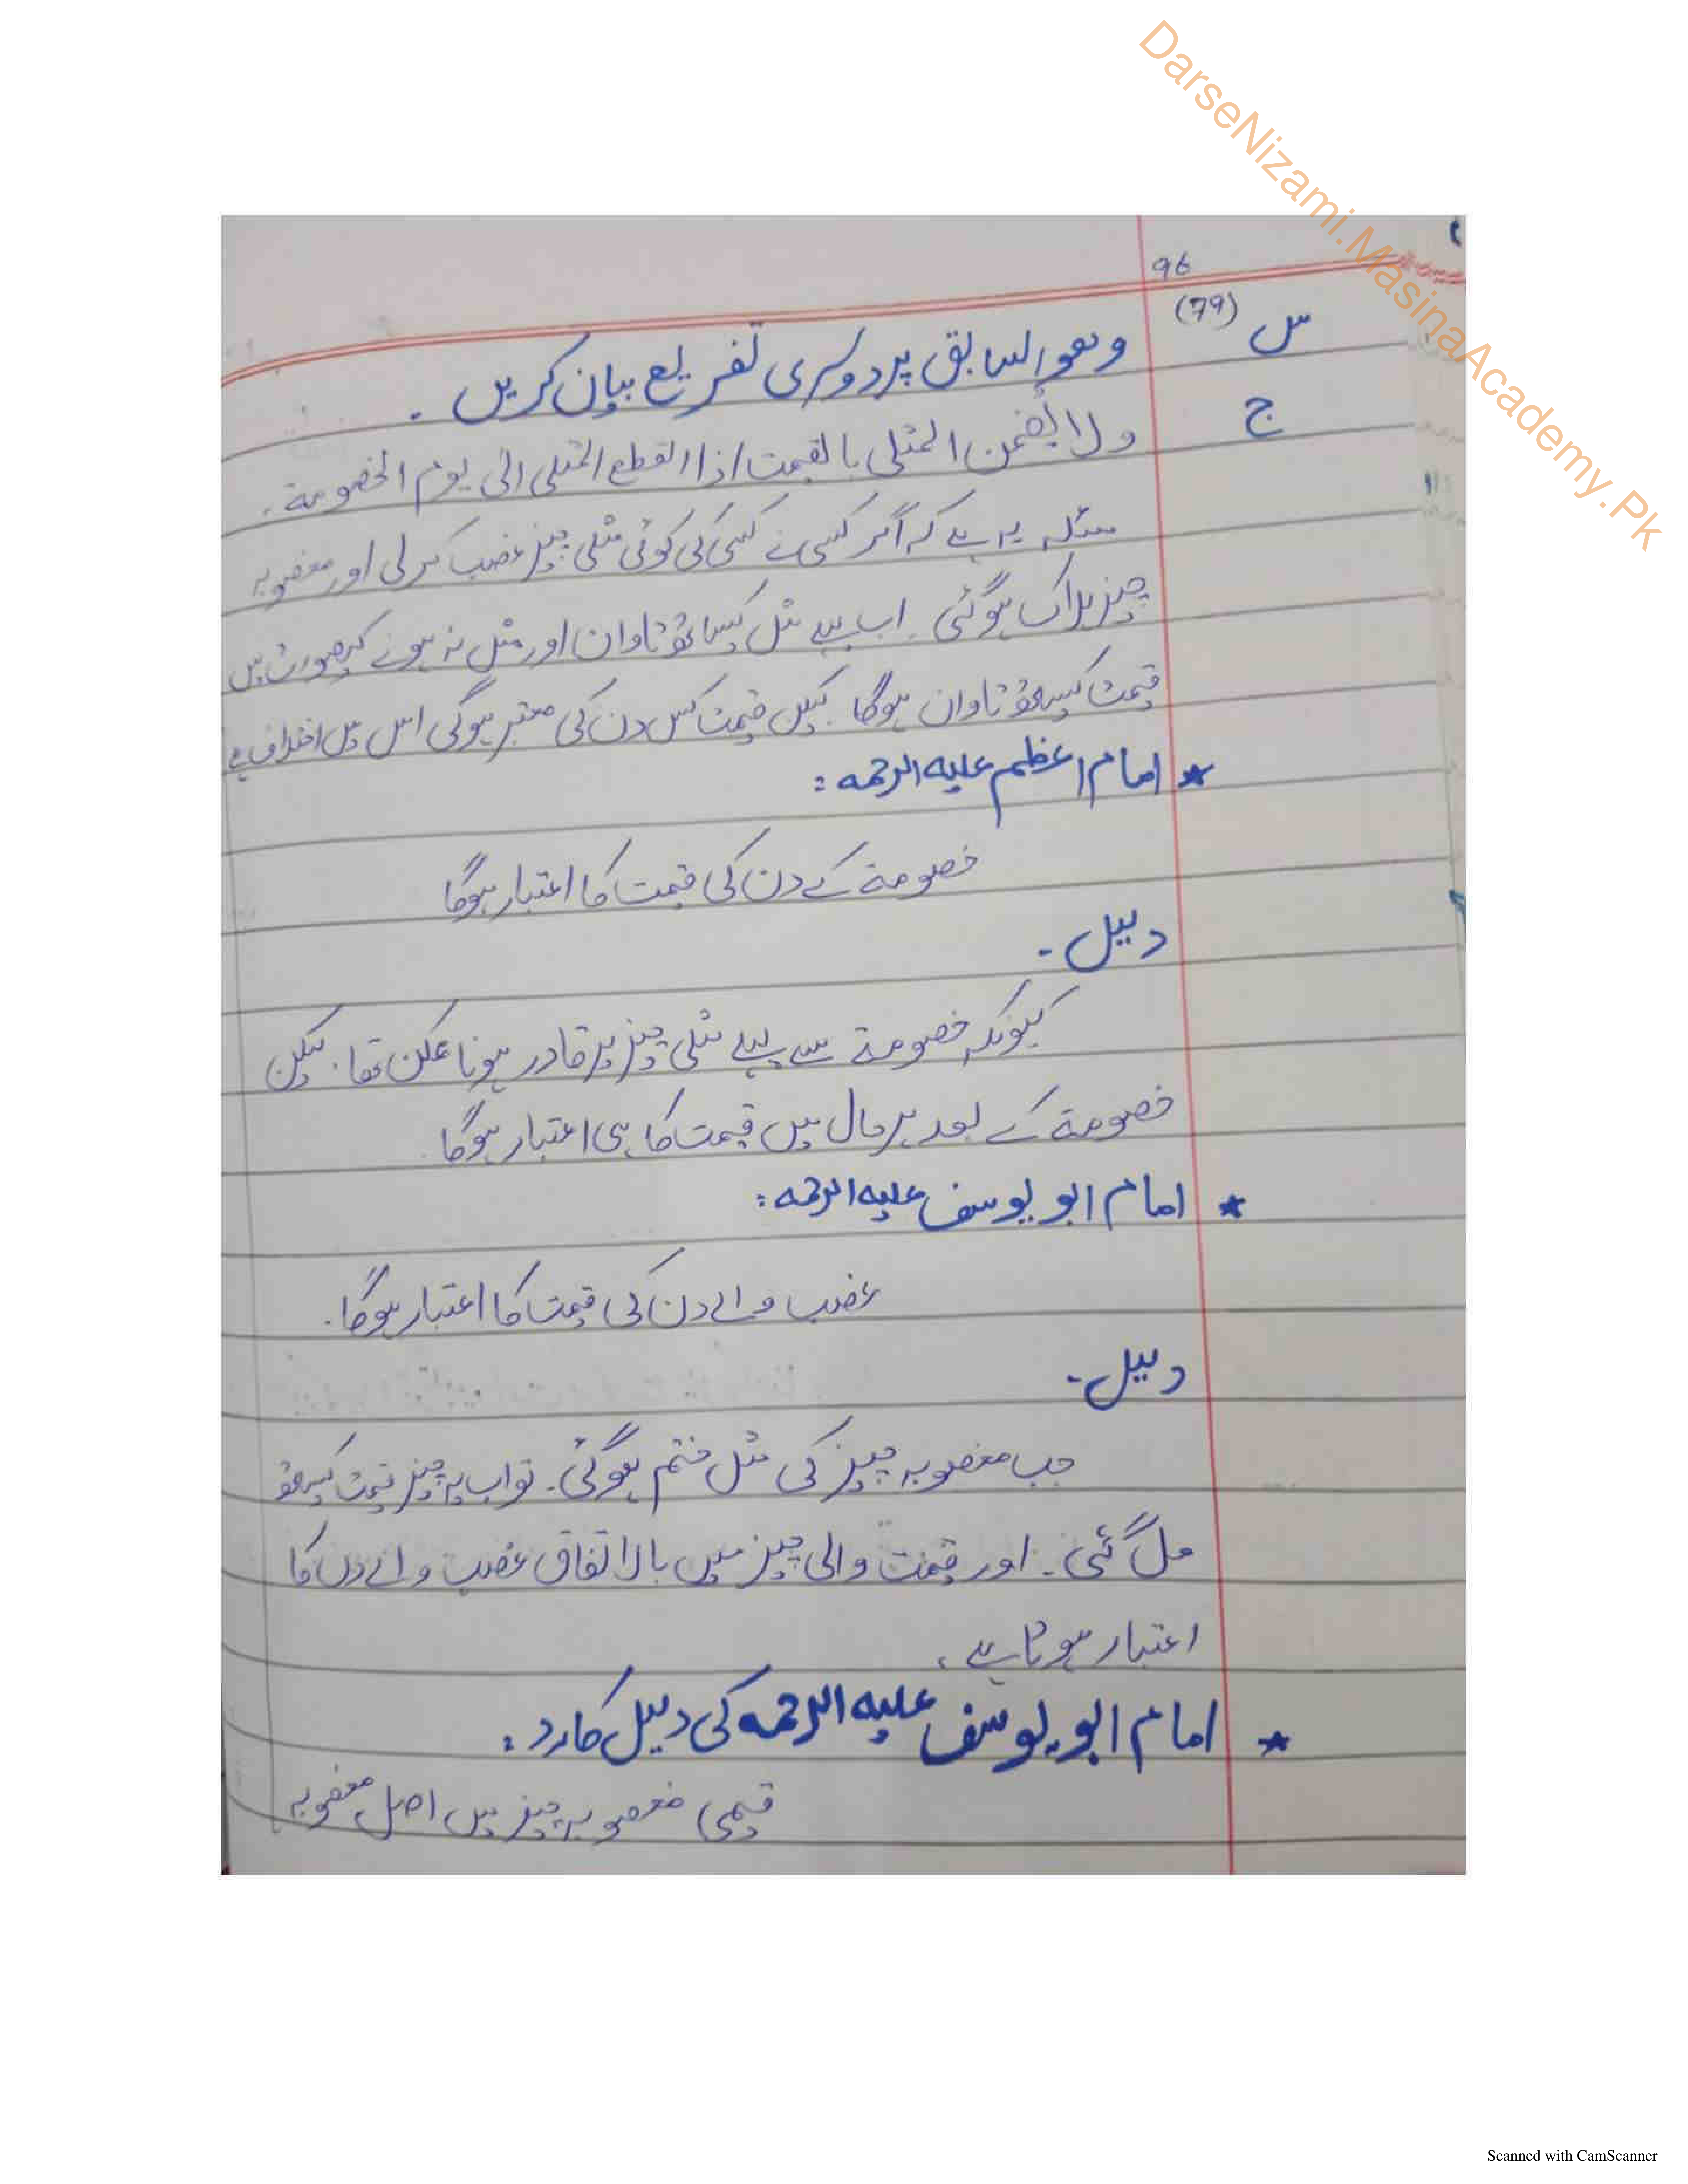 DarseNizami.MasinaAcademy.Pk
96
س (79) وھو السابق پر دوسری تفریع بیان کریں ۔
ج ولا یُضمن المثلی بالقیمت اذا انقطع المثلی الی یوم الخصومۃ ۔
مسئلہ یہ ہے کہ اگر کسی نے کسی کی کوئی مثلی چیز غصب کر لی اور مغصوبہ
چیز ہلاک ہوگئی ۔ اب پہلے مثل کیساتھ تاوان اور مثل نہ ہونے کیصورت میں
قیمت کیساتھ تاوان ہوگا ۔ لیکن قیمت کس دن کی معتبر ہوگی اس میں اختلاف ہے
* امام اعظم علیہ الرحمہ :
خصومۃ کے دن کی قیمت کا اعتبار ہوگا
دلیل ۔
کیونکہ خصومۃ سے پہلے مثلی چیز پر قادر ہونا ممکن تھا ۔ لیکن
خصومۃ کے بعد ہر حال میں قیمت کا ہی اعتبار ہوگا ۔
* امام ابو یوسف علیہ الرحمہ :
غصب والے دن کی قیمت کا اعتبار ہوگا ۔
دلیل ۔
جب مغصوبہ چیز کی مثل ختم ہوگئی ۔ تو اب یہ چیز قیمت کیساتھ
مل گئی ۔ اور قیمت والی چیز میں بالاتفاق غصب والے دن کا
اعتبار ہوتا ہے ۔
* امام ابو یوسف علیہ الرحمہ کی دلیل کا رد :
قیمی مغصوبہ چیز میں اصل مغصوبہ
Scanned with CamScanner